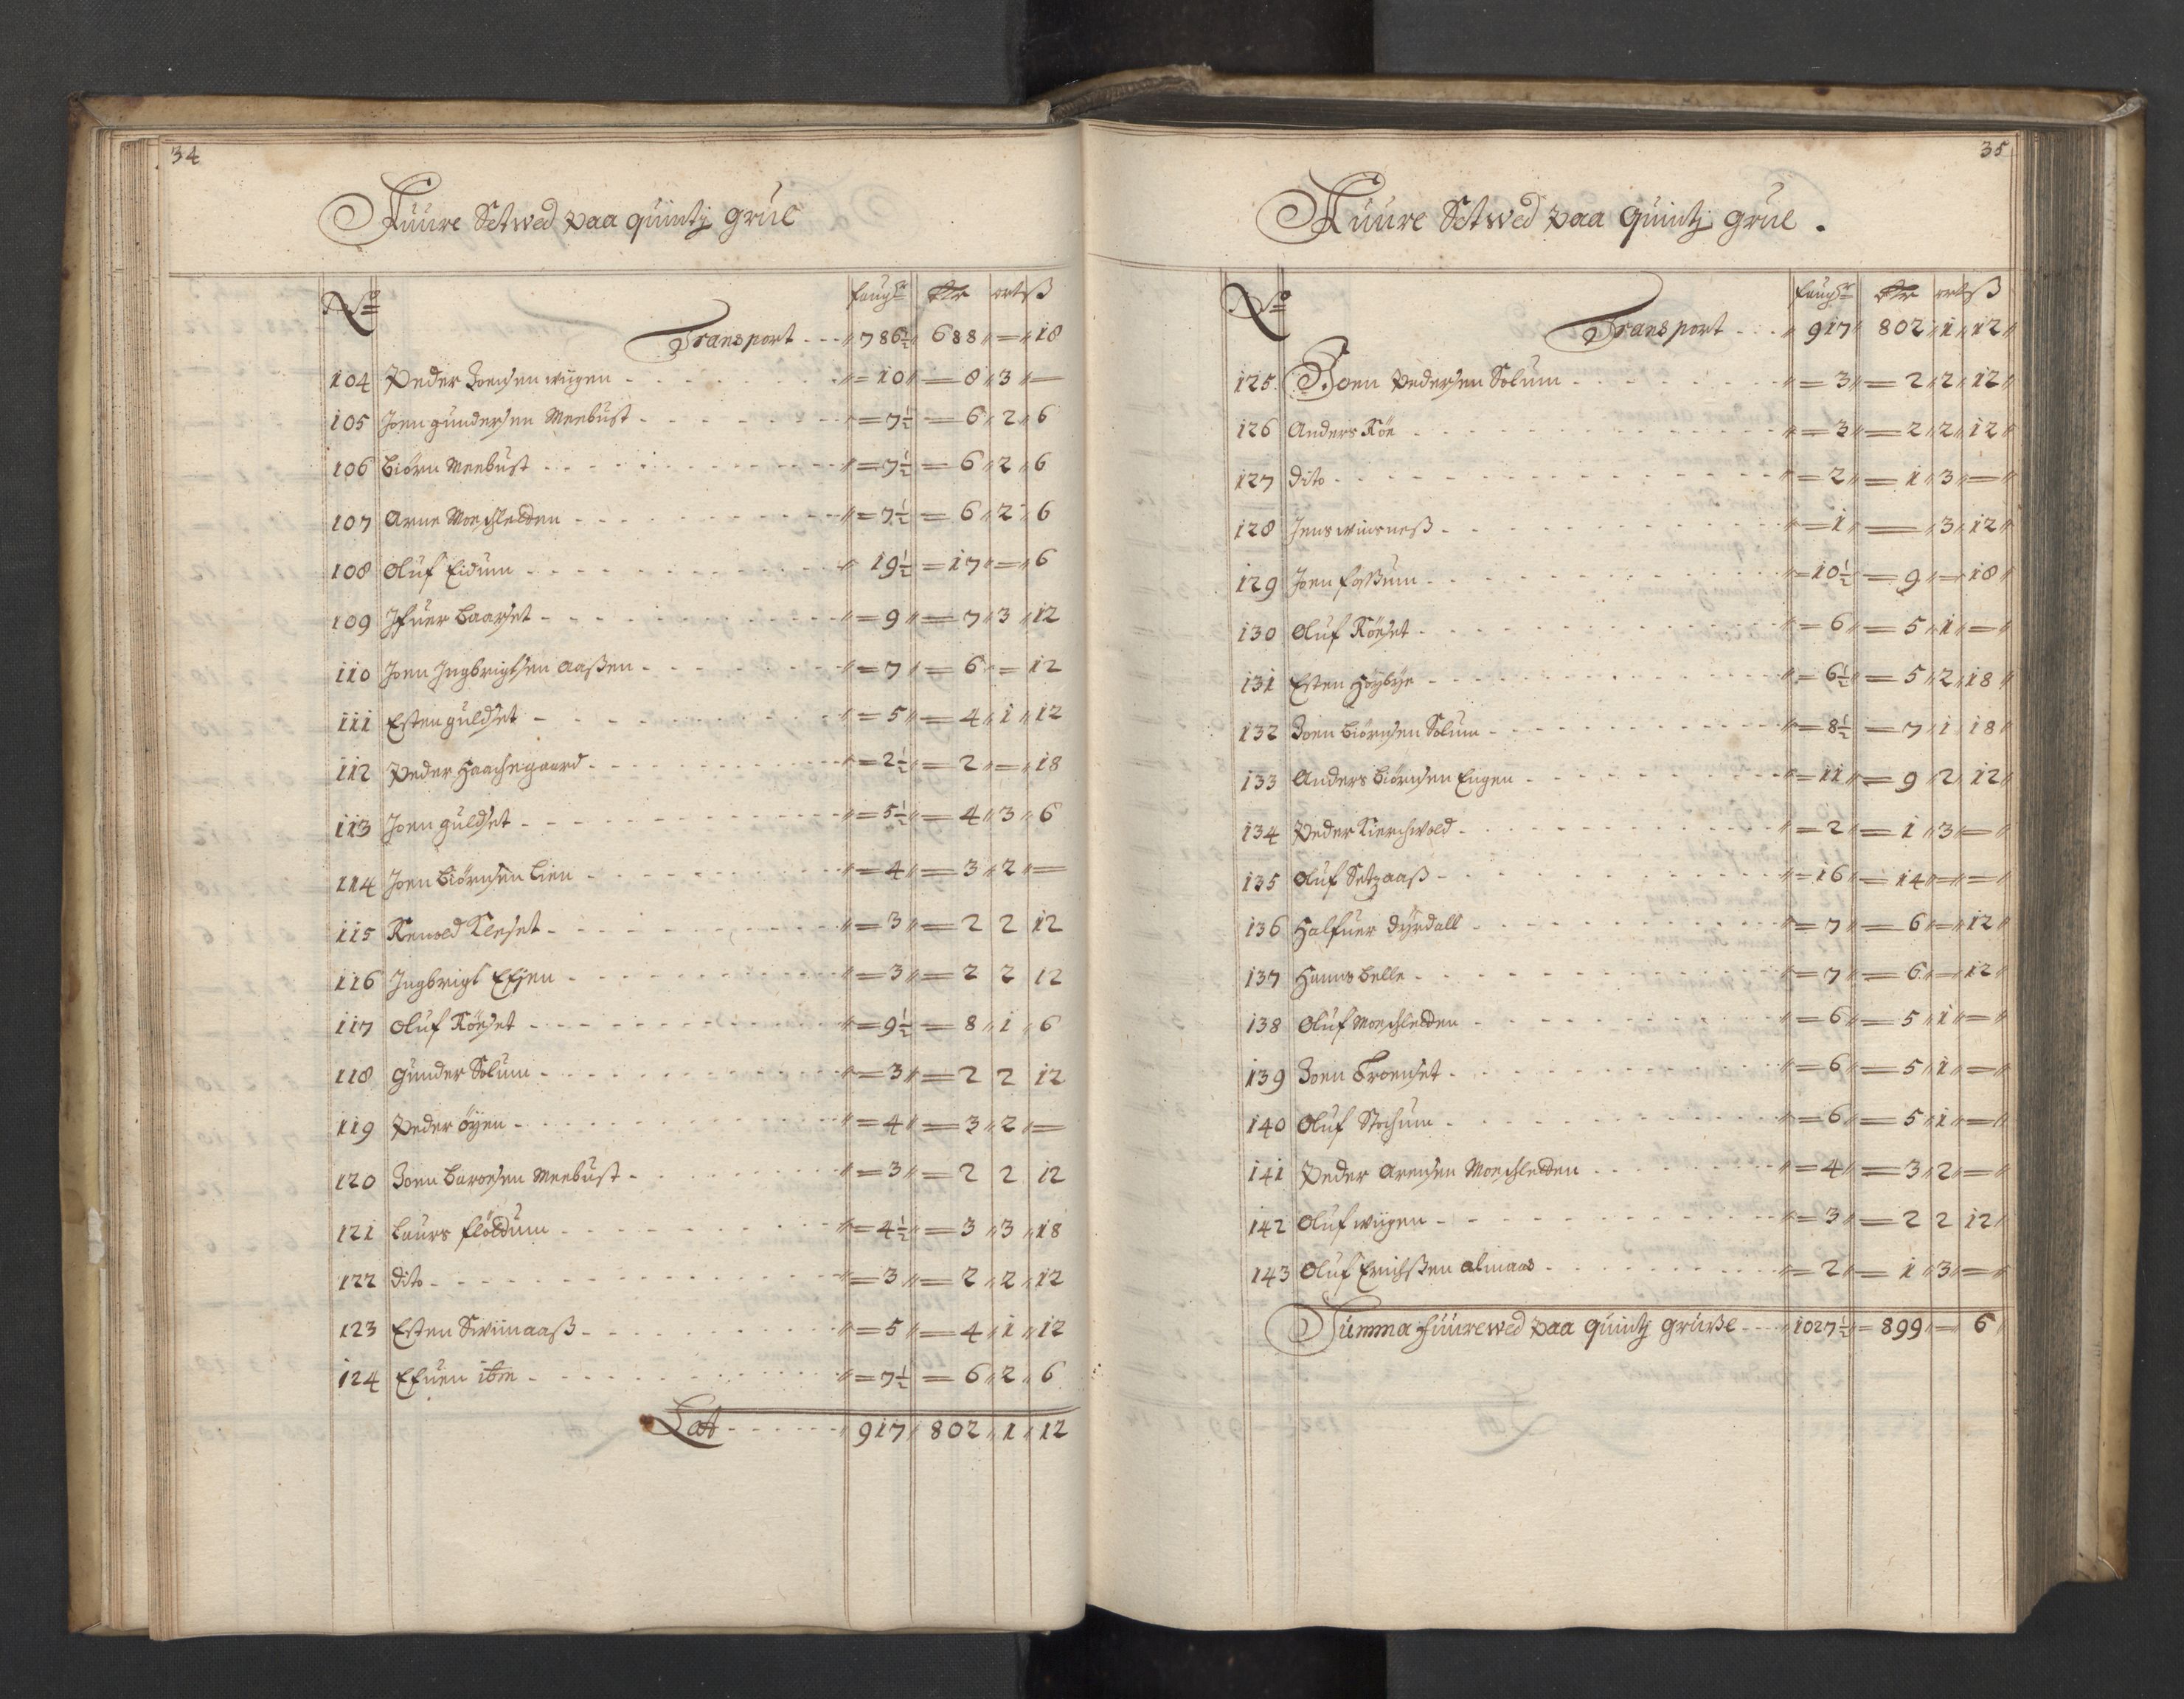 34
Fuure Setwed paa quintj grue
No faugr Rdr ort ß
Transport - - - 786½ 688 = 18
104 Peder Joensen wiigen - - - = 10 = 8 3 =
105 Joen gundersen Meebust - - - = 7½ = 6 2 6
106 Biörn Meebust - - - = 7½ = 6 2 6
107 Arne Moesletten - - - = 7½ = 6 2 6
108 Oluf Eidum - - - 19½ = 17 = 6
109 Ifuer Baarset - - - = 9 = 7 3 12
110 Joen Ingbrigtsen Aaßen - - - = 7 = 6 = 12
111 Esten guldset - - - = 5 = 4 1 12
112 Peder Haagegaard - - - = 2½ = 2 = 18
113 Joen guldset - - - = 5½ = 4 3 6
114 Joen Biörnsen Lien - - - = 4 = 3 2 =
115 Renold Kleset - - - = 3 = 2 2 12
116 Ingbrigt Essen - - - = 3 = 2 2 12
117 Oluf Röeset - - - = 9½ = 8 1 6
118 gunder Solum - - - = 3 = 2 2 12
119 Peder öyen - - - = 4 = 3 2 =
120 Joen Baroesen Meebust - - - = 3 = 2 2 12
121 Laurs flöttum - - - = 4½ = 3 3 18
122 dito - - - = 3 = 2 2 12
123 Esten Swiinaaß - - - = 5 = 4 1 12
124 Efuen ibm - - - = 7½ = 6 2 6
Lat - - - 917 802 1 12
35
Fuure Setwed paa quintj grue .
No faugr Rdr ort ß
Transport - - - 917 802 1 12
125 Joen Pedersen Solum - - - = 3 = 2 2 12
126 Anders Röe - - - = 3 = 2 2 12
127 dito - - - = 2 = 1 3 =
128 Jens wiinsneß - - - = 1 = 3 12
129 Joen foßum - - - = 10½ = 9 = 18
130 Oluf Röeset - - - = 6 = 5 1 =
131 Esten Höybye - - - = 6½ = 5 2 18
132 Joen Biörnsen Solum - - - = 8½ = 7 1 18
133 Anders Biörnsen Engen - - - = 11 = 9 2 12
134 Peder Kierchwold - - - = 2 = 1 3 =
135 Oluf Setzaaß - - - = 16 = 14 = =
136 Halfuer dyrdall - - - = 7 = 6 = 12
137 Hanns Belle - - - = 7 = 6 = 12
138 Oluf Moesletten - - - = 6 = 5 1 =
139 Joen Troenset - - - = 6 = 5 1 =
140 Oluf Stochum - - - = 6 = 5 1 =
141 Peder Arensen Moesletten - - - = 4 = 3 2 =
142 Oluf wiigen - - - = 3 = 2 2 12
143 Oluf Erichßen almaas - - - = 2 = 1 3 =
Summa fuurewed paa quintj gruße - - - 1027½ = 899 = 6